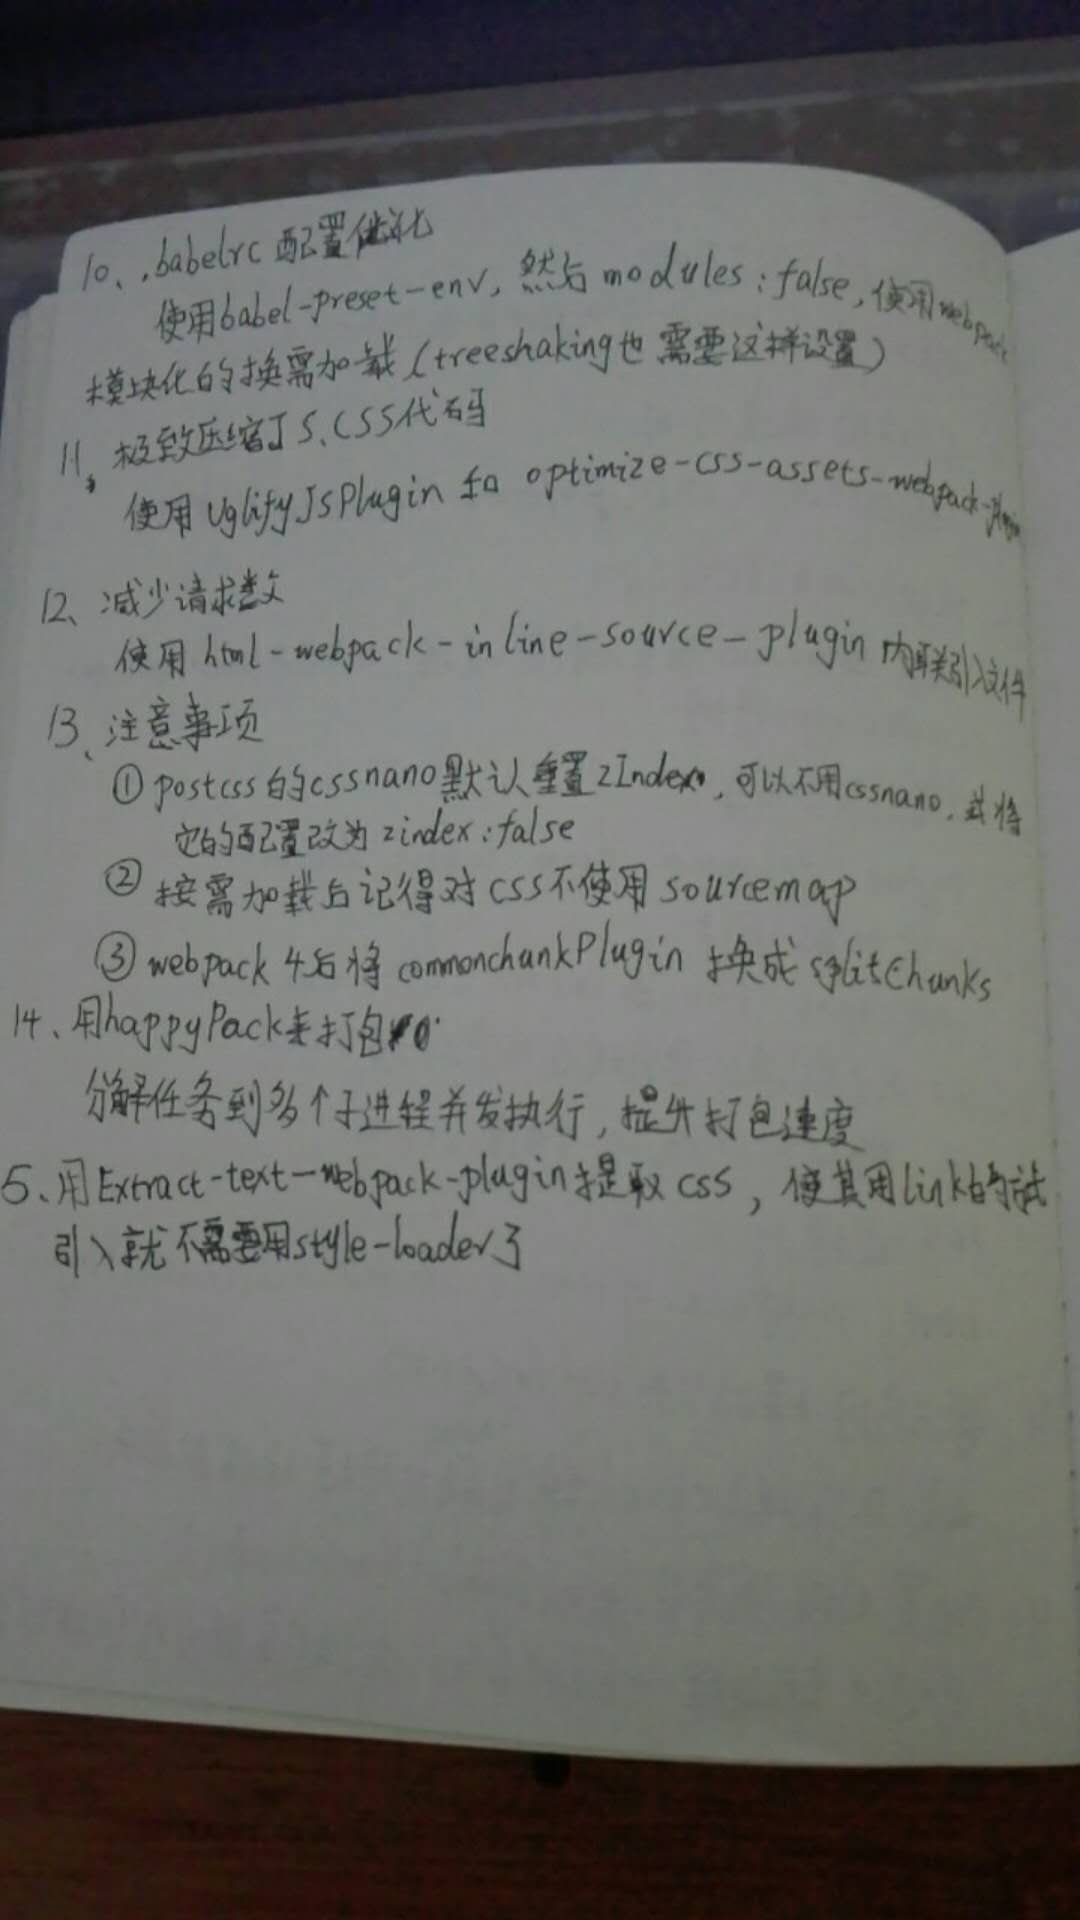 10、.babelrc 配置优化
使用babel-preset-env, 然后 modules:false, 使用webpack
模块化的按需加载 (treeshaking也需要这样设置)
11、极致压缩JS、CSS代码
使用 UglifyJSPlugin 和 optimize-css-assets-webpack-plugin
12、减少请求数
使用 html-webpack-inline-source-plugin 内联引入文件
13、注意事项
① postcss的cssnano默认重置zIndex, 可以不用cssnano. 并将
它的配置改为 zindex:false
② 按需加载后记得对css不使用 sourcemap
③ webpack 4后将 commonchunkPlugin 换成 splitChunks
14、用happyPack来打包
分解任务到多个子进程并发执行, 提升打包速度
5、用Extract-text-webpack-plugin提取css, 使其用link的方式
引入就不需要用style-loader了